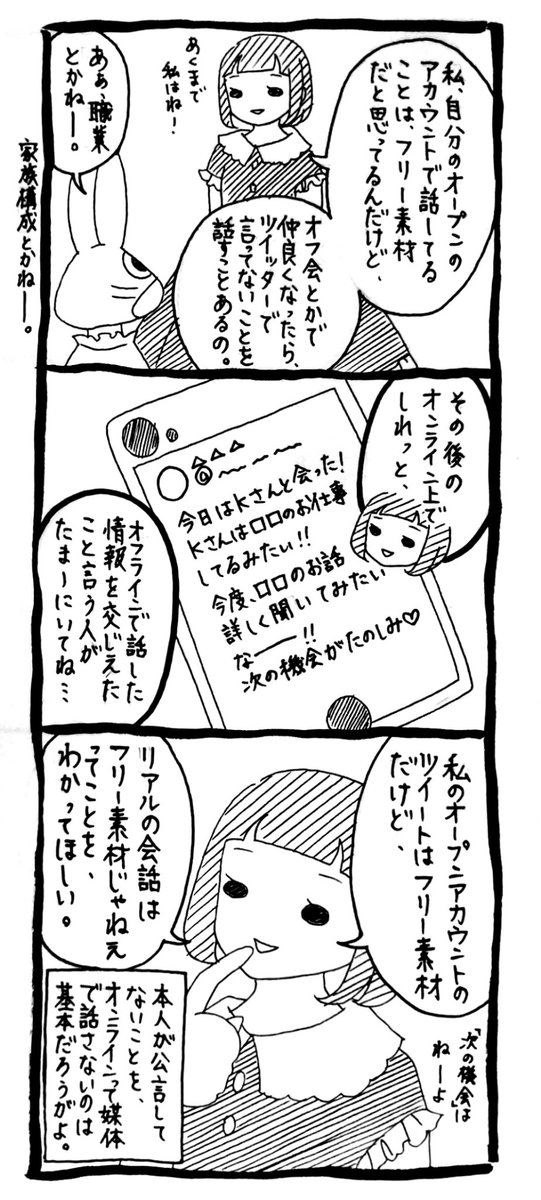 私、自分のオープンの
アカウントで話してる
ことは、フリー素材
だと思ってるんだけど、
あくまで
私はね!
ああ、職業
とかねー。
家族構成とかねー。
オフ会とかで
仲良くなったら、
ツイッターで
言ってないことを
話すことあるの。
その後の
オンライン上で
しれっと、
△△△
@
今日はKさんと会った!
Kさんは口口のお仕事
してるみたい!!
今度、口口のお話
詳しく聞いてみたい
なー!!
次の機会がたのしみ♡
オフラインで話した
情報を交じえた
こと言う人が
たまーにいてね…
私のオープンアカウントの
ツイートはフリー素材
だけど、
リアルの会話は
フリー素材じゃねぇ
ってことを、
わかってほしい。
「次の機会」は
ねーよ
本人が公言して
ないことを、
オンラインって媒体
で話さないのは
基本だろうがよ。